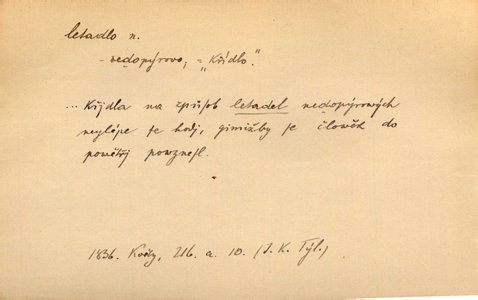 letadlo n.
- nedopýrovo, = „Křídlo."
... Křjdla na způsob letadel nedopýrových
neylépe se hodj, gimižby se člowěk do
powětřj powznesl.
1836. Květy, Ub. a. 10. (J. K. Tyl.)